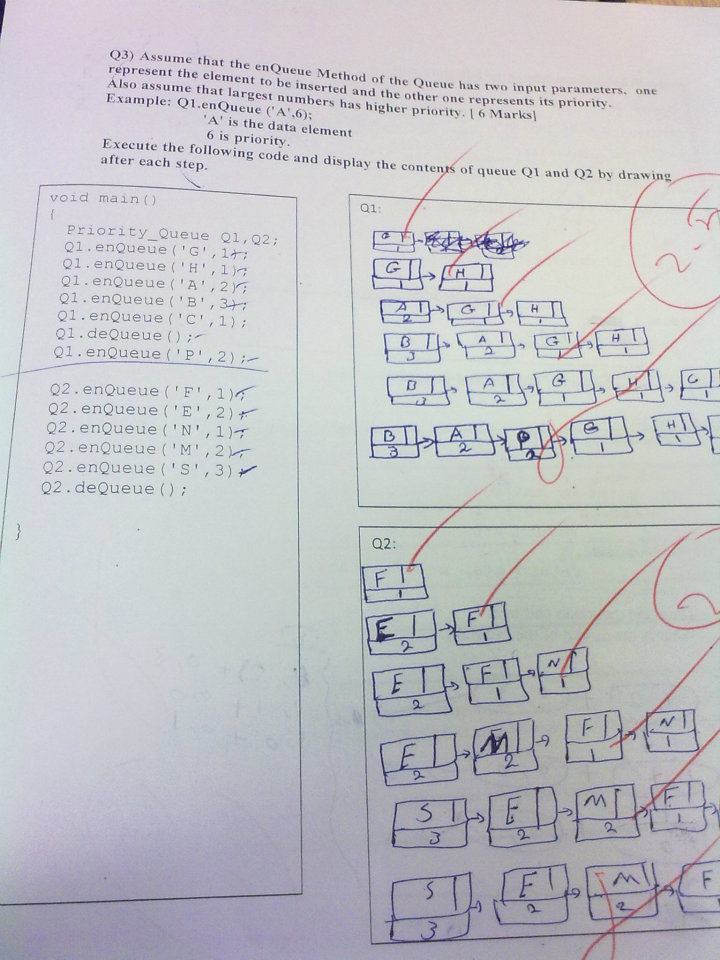 Q3) Assume that the enQueue Method of the Queue has two input parameters, one
represent the element to be inserted and the other one represents its priority.
Also assume that largest numbers has higher priority. [ 6 Marks]
Example: Q1.enQueue ('A',6);
'A' is the data element
6 is priority.
Execute the following code and display the contents of queue Q1 and Q2 by drawing
after each step.
void main()
{
Priority_Queue Q1,Q2;
Q1.enQueue('G',1);
Q1.enQueue('H',1);
Q1.enQueue('A',2);
Q1.enQueue('B',3);
Q1.enQueue('C',1);
Q1.deQueue();
Q1.enQueue('P',2);
Q2.enQueue('F',1);
Q2.enQueue('E',2);
Q2.enQueue('N',1);
Q2.enQueue('M',2);
Q2.enQueue('S',3);
Q2.deQueue();
}
Q1:
G H
1 1
A G H
2 1 1
B A G H
3 2 1 1
B A G H C
3 2 1 1 1
B A P G H
3 2 2 1 1
Q2:
F
1
E F
2 1
E F N
2 1 1
E M F N
2 2 1 1
S E M F
3 2 2 1
S E M F
3 2 2